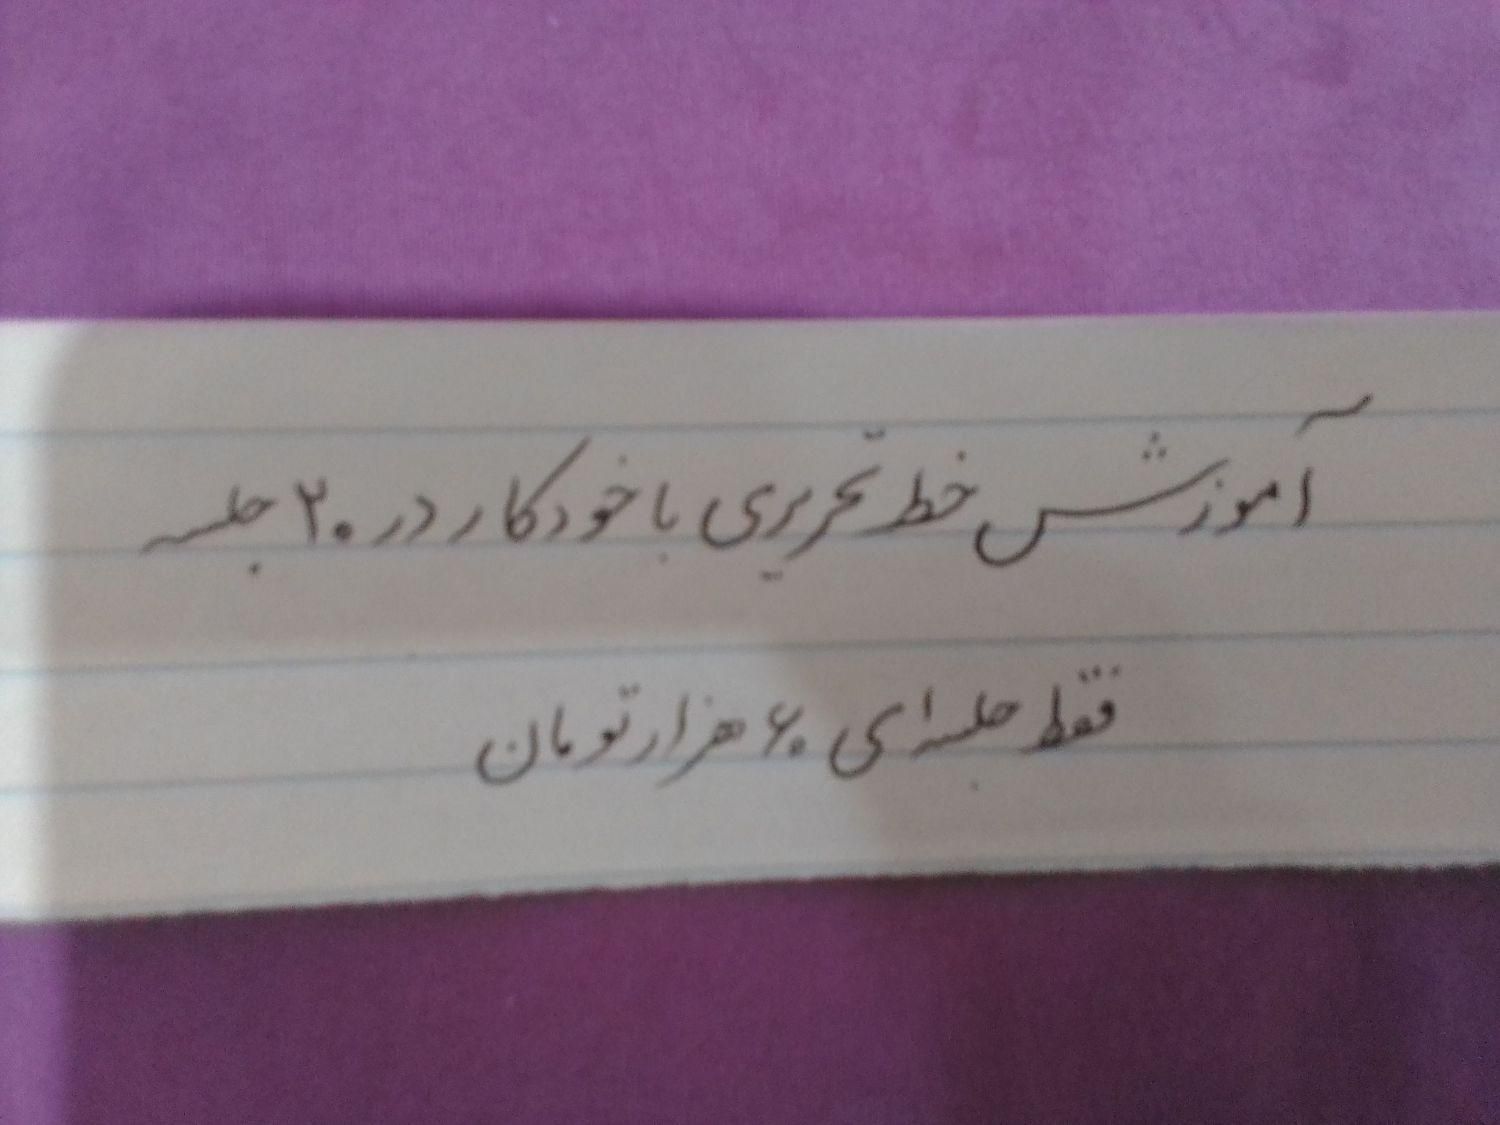 آموزش خط تحریری با خودکار در ۲۰ جلسه
فقط جلسه ای ۶۰ هزار تومان